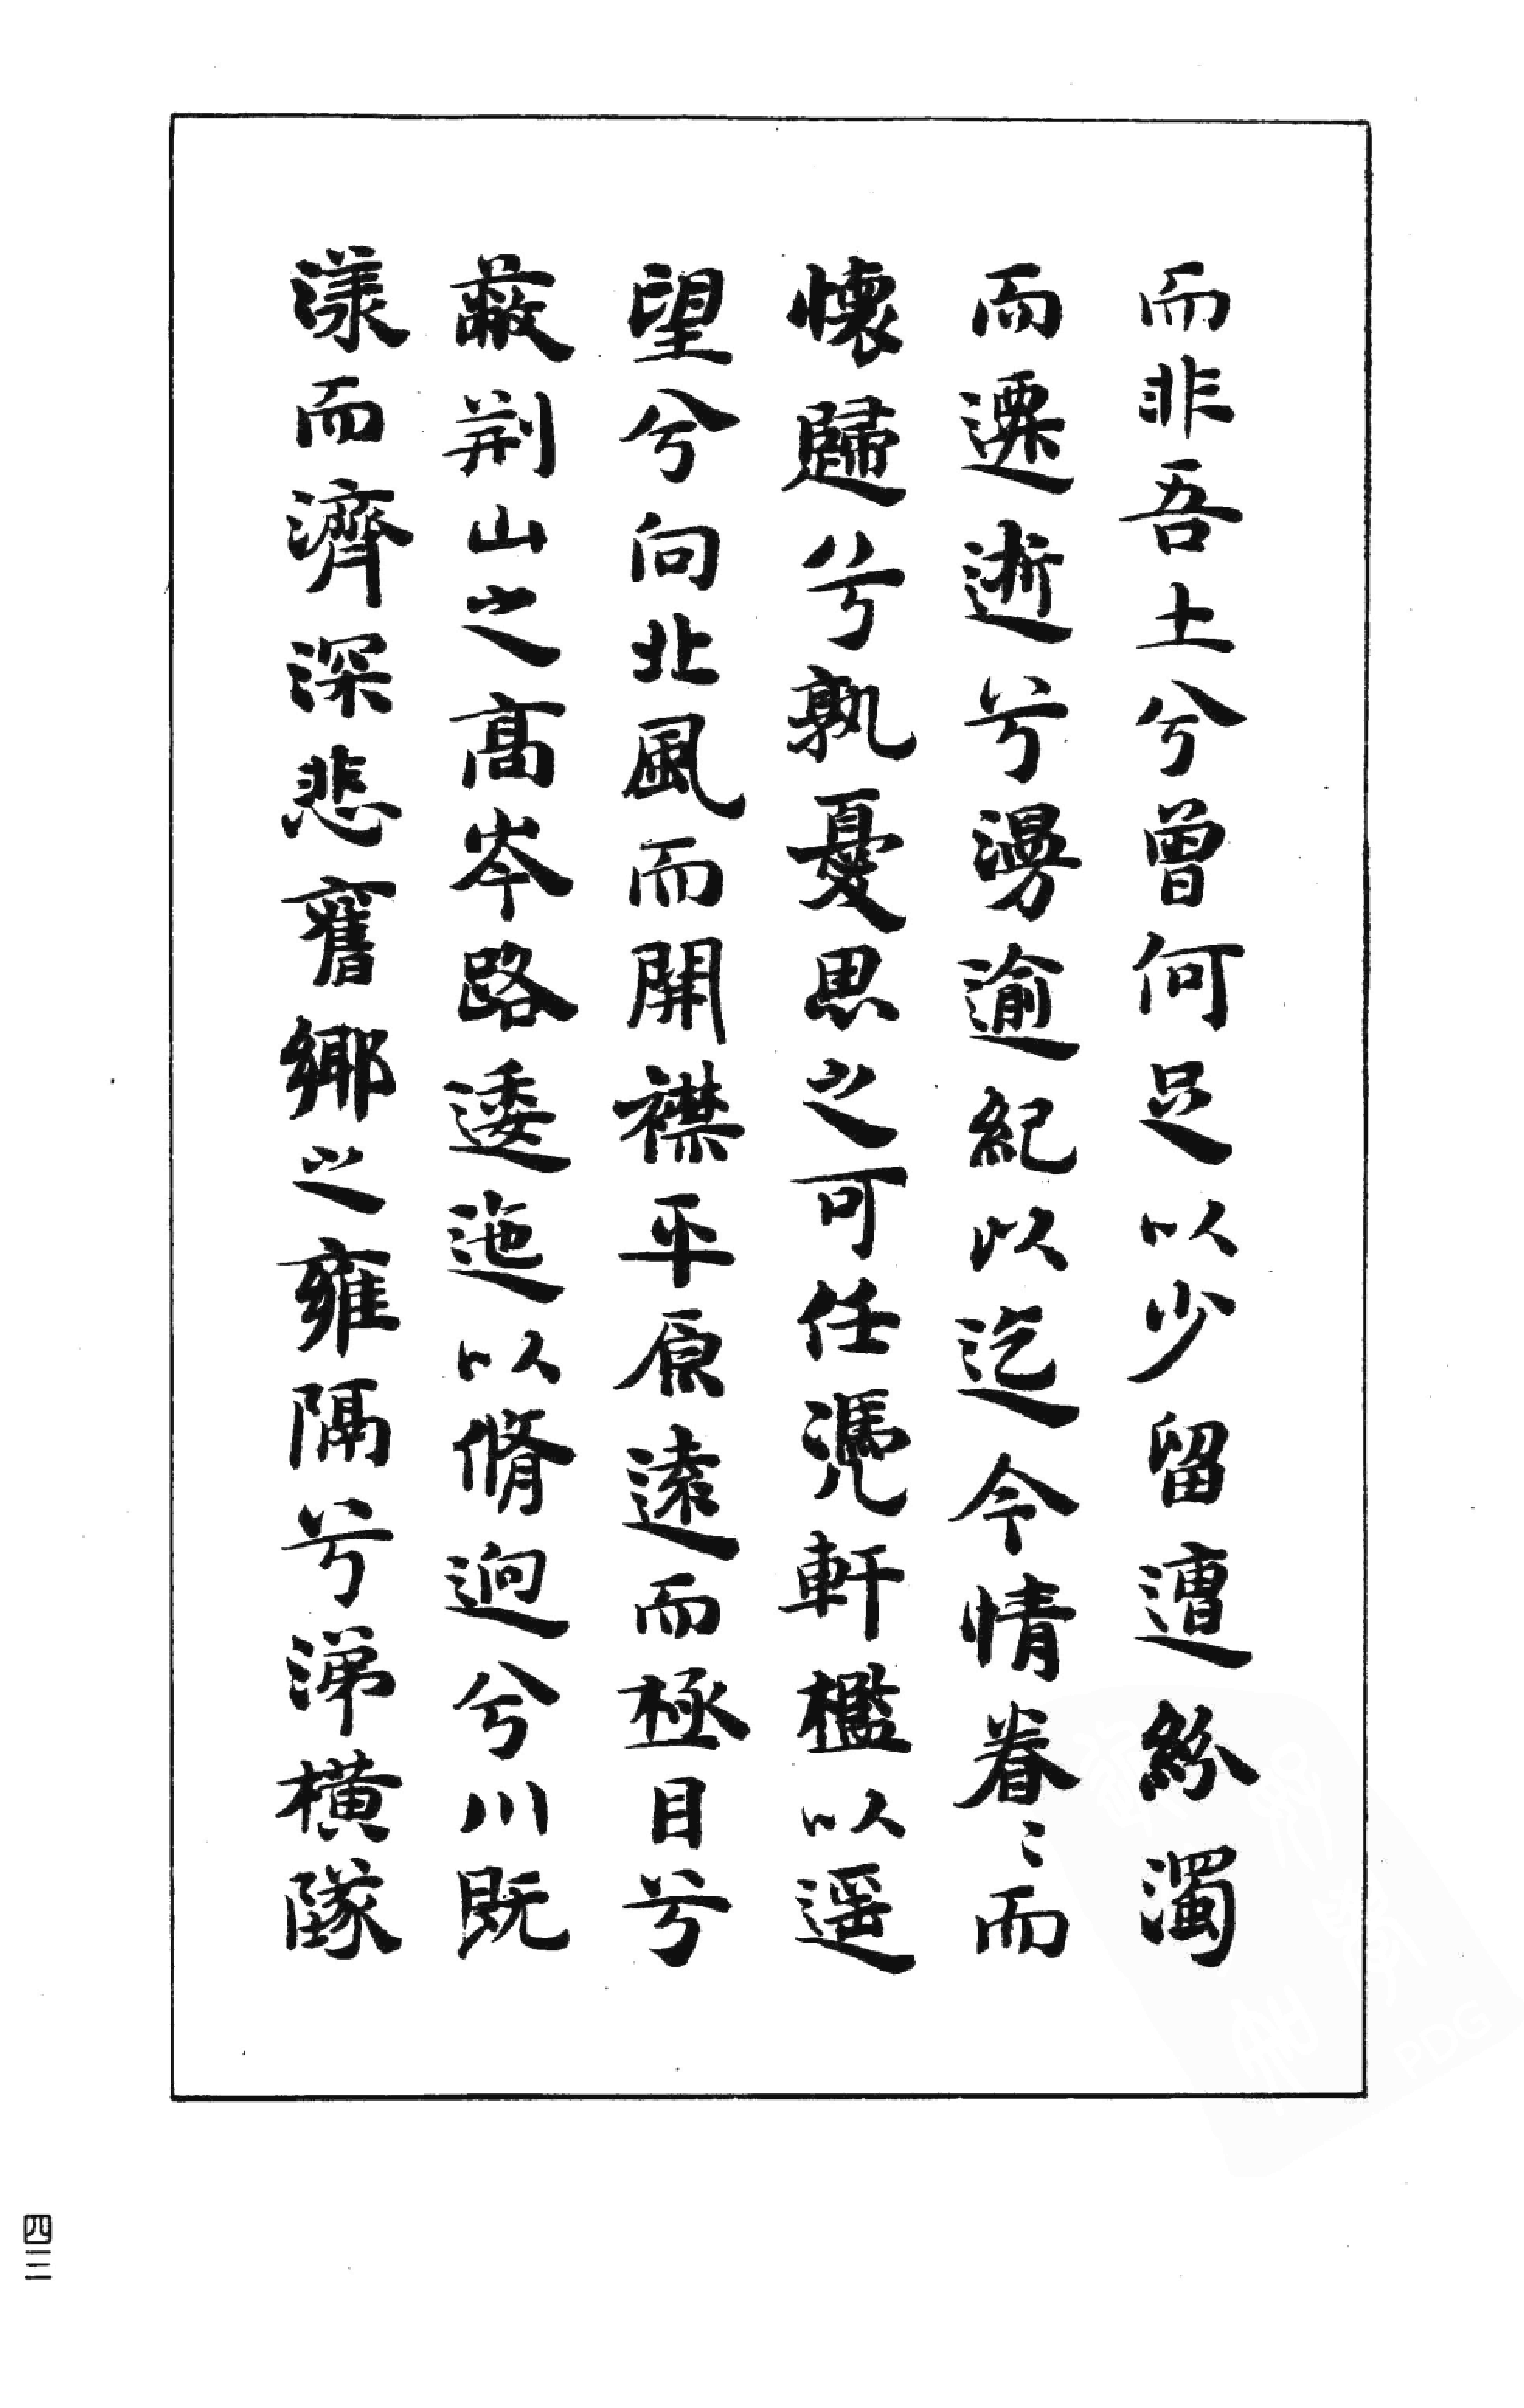 而非吾土兮曾何足以少留遭紛濁
而遷逝兮漫逾紀以迄今情眷〻而
懷歸兮孰憂思之可任憑軒檻以遥
望兮向北風而開襟平原遠而極目兮
蔽荆山之高岑路逶迤以脩迥兮川既
漾而濟深悲舊鄉之雍隔兮涕橫隊
四三